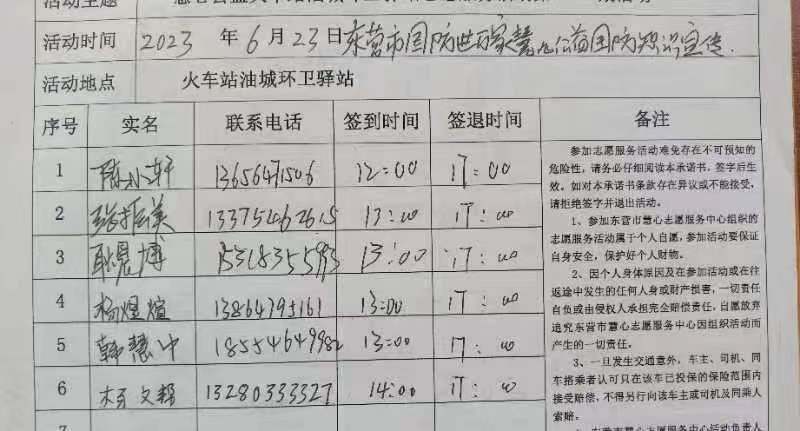 活动主题
活动时间 2023 年 6 月 23 日 东营市国防进万家慧心公益国防知识宣传.
活动地点 火车站油城环卫驿站
序号 实名 联系电话 签到时间 签退时间 备注
1 陈小轩 13656471506 12:00 17:00
2 张振美 13375462615 13:00 17:00
3 耿晃博 15318355993 13:00 17:00
4 杨煜煊 13864795161 13:00 17:00
5 韩慧中 18554649982 13:00 17:00
6 杨文邦 13280333327 14:00 17:00
参加志愿服务活动难免存在不可预知的
危险性，请务必仔细阅读本承诺书，签字后生
效。如对本承诺书条款存在异议或不能接受，
请拒绝签字并退出活动。
1、参加东营市慧心志愿服务中心组织的
志愿服务活动属于个人自愿，参加活动要保证
自身安全，保护好个人财物。
2、因个人身体原因及在参加活动或在往
返途中发生的任何人身或财产损害，一切责任
自负或由侵权人承担完全赔偿责任，自愿放弃
追究东营市慧心志愿服务中心因组织活动而
产生的一切责任。
3、一旦发生交通意外，车主、司机、同
车搭乘者认可只在该车已投保的保险范围内
接受赔偿，不得另行向该车主或司机及同乘人
索赔。